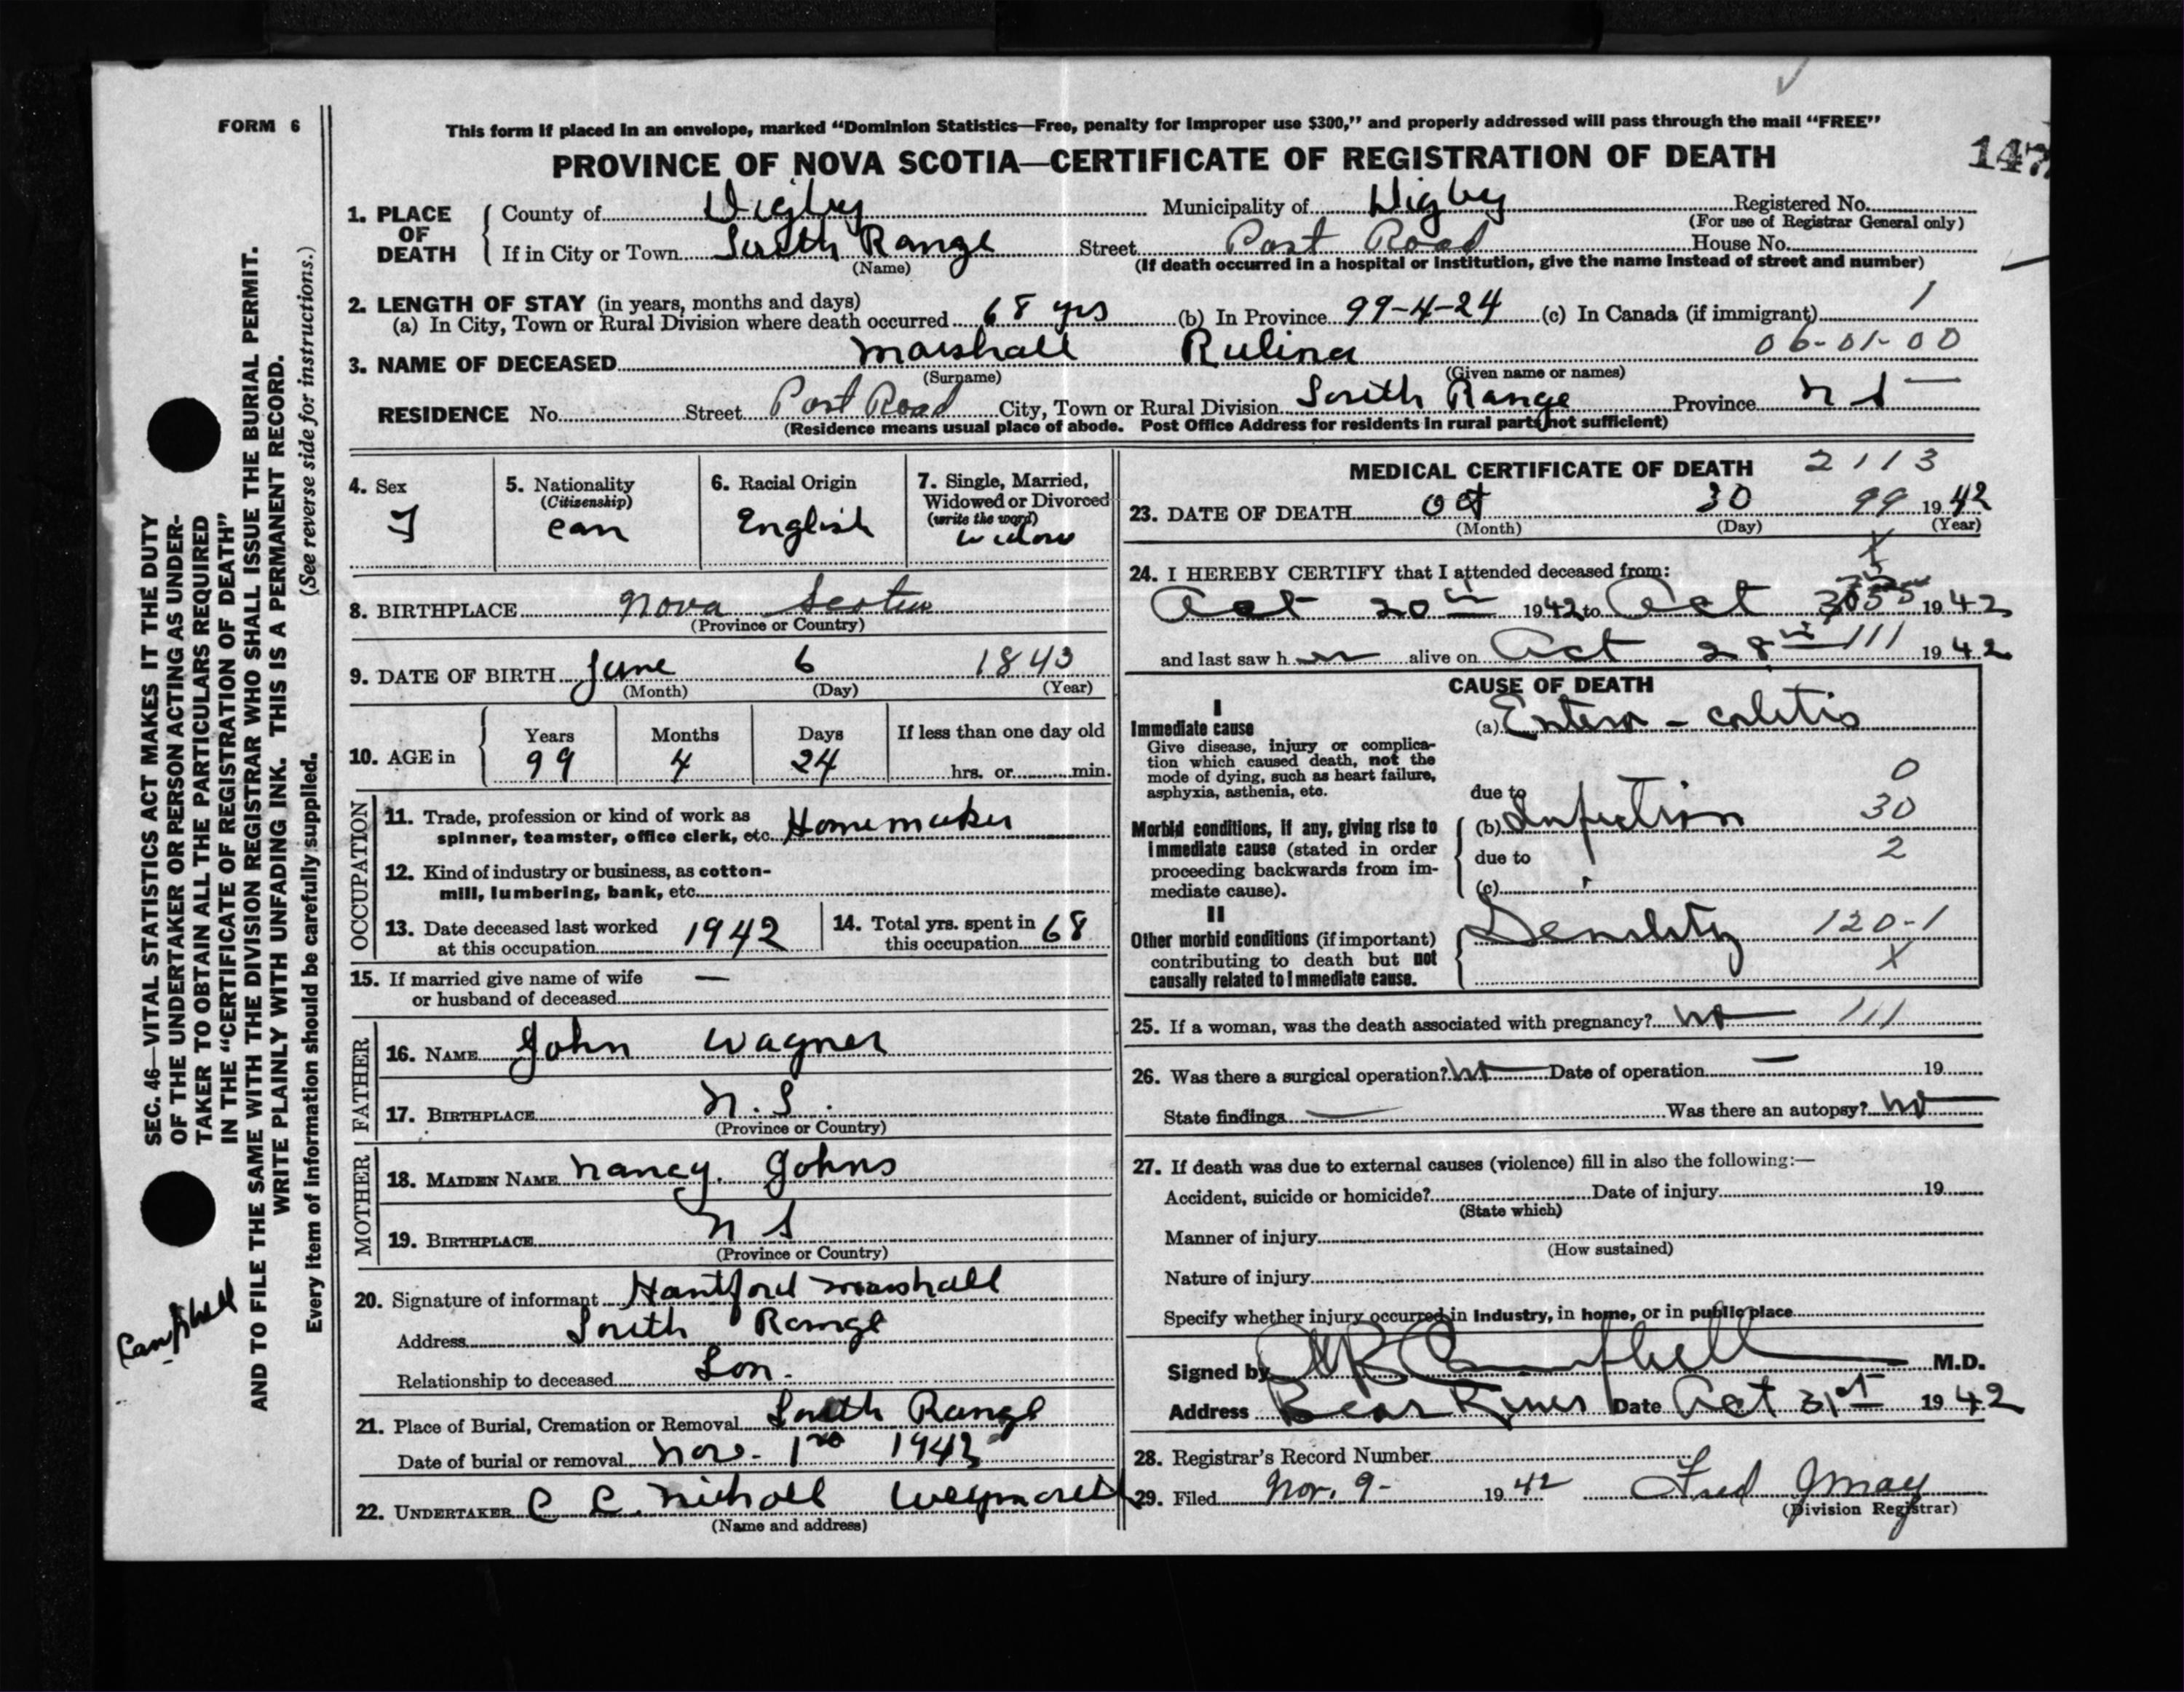 FORM 6
This form if placed in an envelope, marked “Dominion Statistics—Free, penalty for improper use $300,” and properly addressed will pass through the mail “FREE”
PROVINCE OF NOVA SCOTIA—CERTIFICATE OF REGISTRATION OF DEATH
147
1. PLACE OF DEATH
County of Digby Municipality of Digby Registered No.
(For use of Registrar General only)
If in City or Town South Range Street Post Road House No.
(Name) (If death occurred in a hospital or institution, give the name instead of street and number)
2. LENGTH OF STAY (in years, months and days)
(a) In City, Town or Rural Division where death occurred 68 yrs (b) In Province 99-4-24 (c) In Canada (if immigrant) 1
3. NAME OF DECEASED Marshall Rulina 06-01-00
(Surname) (Given name or names)
RESIDENCE No. Street Post Road City, Town or Rural Division South Range Province N S
(Residence means usual place of abode. Post Office Address for residents in rural parts not sufficient)
4. Sex F
5. Nationality (Citizenship) Can
6. Racial Origin English
7. Single, Married, Widowed or Divorced (write the word) Widow
8. BIRTHPLACE Nova Scotia
(Province or Country)
9. DATE OF BIRTH June 6 1843
(Month) (Day) (Year)
10. AGE in Years 99 Months 4 Days 24 If less than one day old hrs. or min.
OCCUPATION
11. Trade, profession or kind of work as
spinner, teamster, office clerk, etc. Homemaker
12. Kind of industry or business, as cotton-
mill, lumbering, bank, etc.
13. Date deceased last worked
at this occupation 1942
14. Total yrs. spent in
this occupation 68
15. If married give name of wife —
or husband of deceased
FATHER
16. NAME John Wagner
17. BIRTHPLACE N.S.
(Province or Country)
MOTHER
18. MAIDEN NAME Nancy Johns
19. BIRTHPLACE N S
(Province or Country)
20. Signature of informant Hantford Marshall
Address South Range
Relationship to deceased Son.
21. Place of Burial, Cremation or Removal South Range
Date of burial or removal Nov. 1 1942
22. UNDERTAKER C C. Nicholl Weymouth
(Name and address)
MEDICAL CERTIFICATE OF DEATH 2113
23. DATE OF DEATH Oct 30 99 1942
(Month) (Day) (Year)
X
24. I HEREBY CERTIFY that I attended deceased from:
Oct 20th 1942 to Oct 30 1942
and last saw her alive on Oct 28th 111 1942
CAUSE OF DEATH
I
Immediate cause
(a) Entero-colitis
Give disease, injury or complica-
tion which caused death, not the
mode of dying, such as heart failure,
asphyxia, asthenia, etc.
0
due to
Morbid conditions, if any, giving rise to
immediate cause (stated in order
proceeding backwards from im-
mediate cause).
(b) Infection 30
due to 2
(c)
II
Other morbid conditions (if important)
contributing to death but not
causally related to immediate cause.
Senility 120-1
X
25. If a woman, was the death associated with pregnancy? No 111
26. Was there a surgical operation? No Date of operation — 19
State findings — Was there an autopsy? No
27. If death was due to external causes (violence) fill in also the following:—
Accident, suicide or homicide? Date of injury 19
(State which)
Manner of injury
(How sustained)
Nature of injury
Specify whether injury occurred in industry, in home, or in public place
Signed by Campbell M.D.
Address Bear River Date Oct 31st 1942
28. Registrar's Record Number
29. Filed Nov. 9- 1942 Fred Jmay
(Division Registrar)
SEC. 46—VITAL STATISTICS ACT MAKES IT THE DUTY
OF THE UNDERTAKER OR PERSON ACTING AS UNDER-
TAKER TO OBTAIN ALL THE PARTICULARS REQUIRED
IN THE “CERTIFICATE OF REGISTRATION OF DEATH”
AND TO FILE THE SAME WITH THE DIVISION REGISTRAR WHO SHALL ISSUE THE BURIAL PERMIT.
WRITE PLAINLY WITH UNFADING INK. THIS IS A PERMANENT RECORD.
Every item of information should be carefully supplied. (See reverse side for instructions.)
Campbell